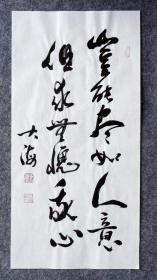 岂能尽如人意
但求无愧我心
大海